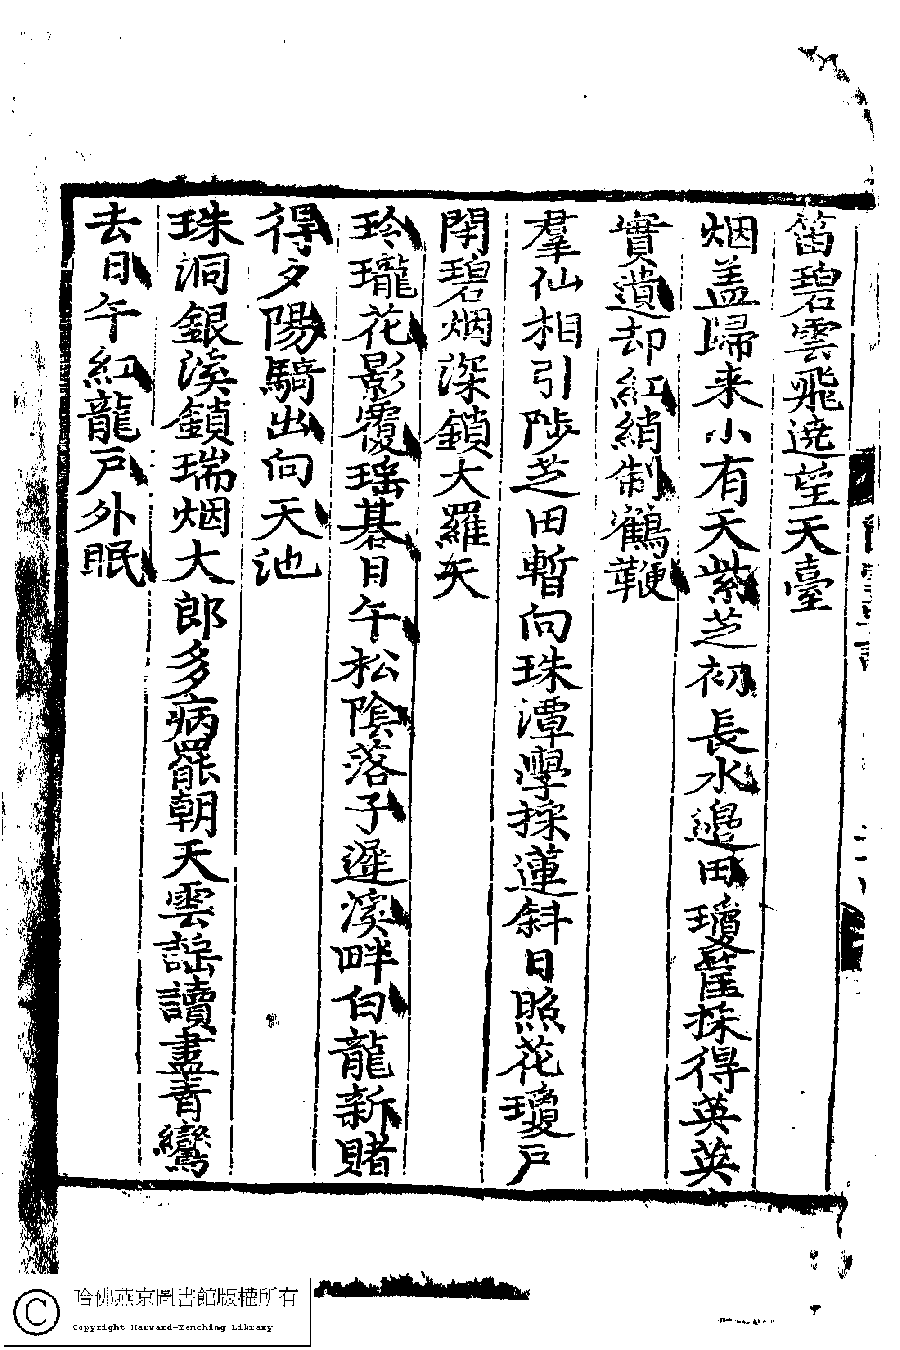 笛碧雲飛遶望天臺
烟盖歸来小有天紫芝初長水邊田瓊筐採得英英
實遺却紅綃制鶴鞭
羣仙相引陟芝田暫向珠潭學採蓮斜日照花瓊戶
閉碧烟深鎖大羅天
玲瓏花影覆瑶碁日午松陰落子遲溪畔白龍新賭
得夕陽騎出向天池
珠洞銀溪鎖瑞烟大郎多病罷朝天雲謠讀盡青鸞
去日午紅龍戶外眠
哈佛燕京圖書館版權所有
Copyright Harvard-Yenching Library